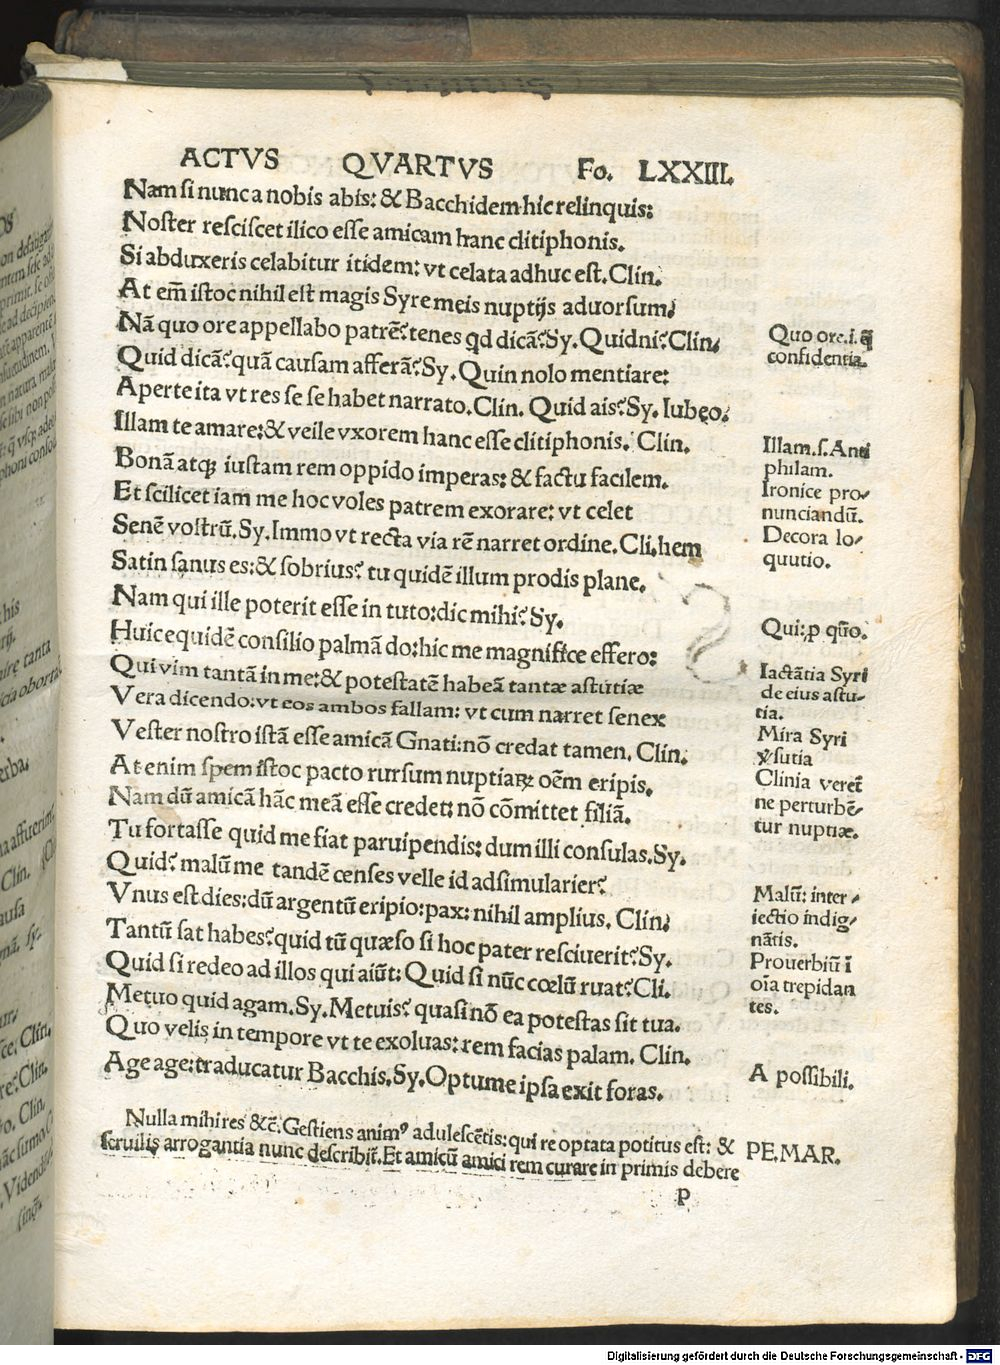 ACTVS QVARTVS Fo. LXXIII.
Nam si nunc a nobis abis: & Bacchidem hic relinquis:
Noster resciscet ilico esse amicam hanc clitiphonis.
Si abduxeris celabitur itidem: vt celata adhuc est. Clin.
At em̃ istoc nihil est magis Syre meis nuptijs aduorsum.
Nã quo ore appellabo patrẽ? tenes qd dicã? Sy. Quidni? Clin.
Quid dicã? quã causam afferã? Sy. Quin nolo mentiare:
Aperte ita vt res se se habet narrato. Clin. Quid ais? Sy. Iubeo.
Illam te amare: & velle vxorem hanc esse clitiphonis. Clin.
Bonã atq; iustam rem oppido imperas: & factu facilem.
Et scilicet iam me hoc voles patrem exorare: vt celet
Senẽ vostrũ. Sy. Immo vt recta via rẽ narret ordine. Cli. hem
Satin sanus es: & sobrius? tu quidẽ illum prodis plane.
Nam qui ille poterit esse in tuto: dic mihi? Sy.
Huic equidẽ consilio palmã do: hic me magnifice effero:
Qui vim tantã in me: & potestatẽ habeã tantæ astutiæ
Vera dicendo: vt eos ambos fallam: vt cum narret senex
Vester nostro istã esse amicã Gnati: nõ credat tamen. Clin.
At enim spem istoc pacto rursum nuptiaꝝ oẽm eripis.
Nam dũ amicã hãc meã esse credet: nõ cõmittet filiã.
Tu fortasse quid me fiat paruipendis: dum illi consulas. Sy.
Quid? malũ me tandẽ censes velle id adsimularier?
Vnus est dies: dũ argentũ eripio: pax: nihil amplius. Clin.
Tantũ sat habes? quid tũ quæso si hoc pater resciuerit? Sy.
Quid si redeo ad illos qui aiũt: Quid si nũc cœlũ ruat? Cli.
Metuo quid agam. Sy. Metuis? quasi nõ ea potestas sit tua.
Quo velis in tempore vt te exoluas: rem facias palam. Clin.
Age age: traducatur Bacchis. Sy. Optume ipsa exit foras.
Nulla mihi res &c̃. Gestiens animꝰ adulescẽtis: qui re optata potitus est: &
seruilis arrogantia nunc describit̃. Et amicũ amici rem curare in primis debere
p
Quo ore .i. q̃
confidentia.
Illam .s. Anti
philam.
Ironice pro-
nunciandũ.
Decora lo-
quutio.
Qui: ꝓ quõ.
Iactãtia Syri
de eius astu-
tia.
Mira Syri
Clinia veret̃
ne perturbẽ-
tur nuptiæ.
Malũ: inter-
iectio indig-
nãtis.
Prouerbiũ ĩ
oĩa trepidan
tes.
A possibili.
PE. MAR.
Digitalisierung gefördert durch die Deutsche Forschungsgemeinschaft - DFG